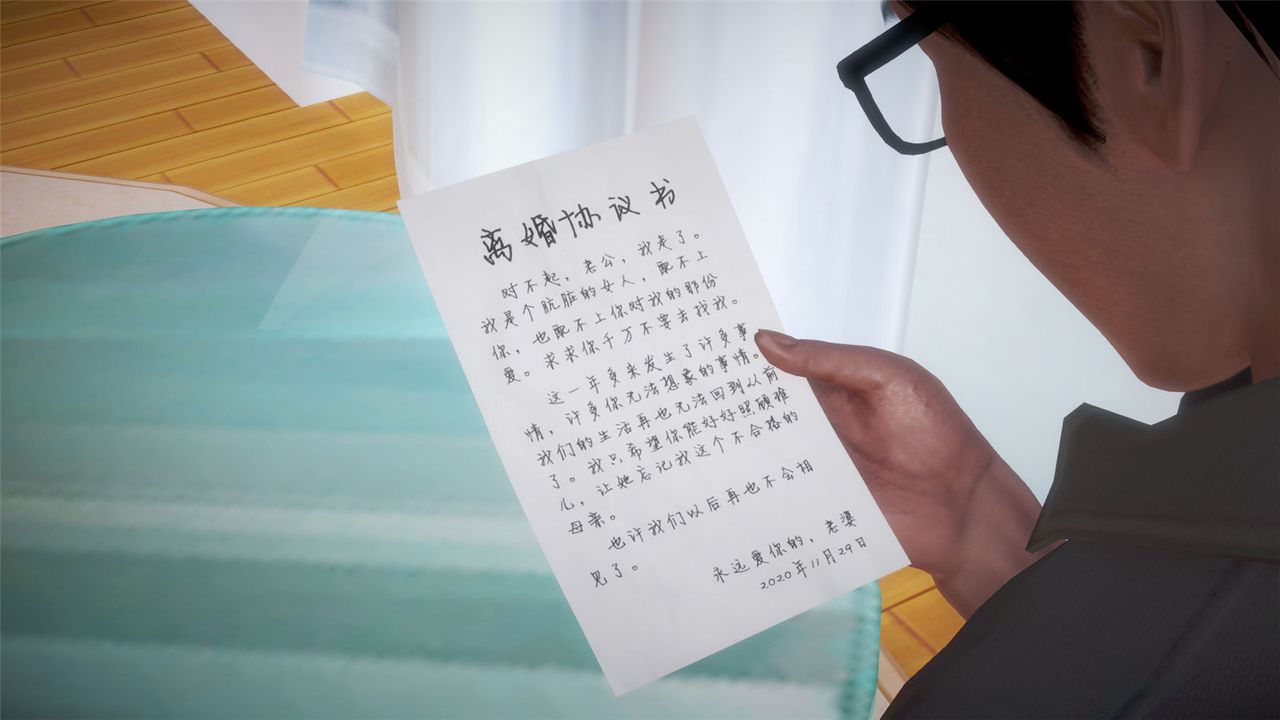 离婚协议书
对不起，老公，我走了。
我是个肮脏的女人，配不上
你，也配不上你对我的那份
爱。求求你千万不要去找我。
这一年多来发生了许多事
情，许多你无法想象的事情。
我们的生活再也无法回到以前
了。我只希望你能好好照顾雅
儿，让她忘记我这个不合格的
母亲。
也许我们以后再也不会相
见了。
永远爱你的，老婆
2020年11月29日